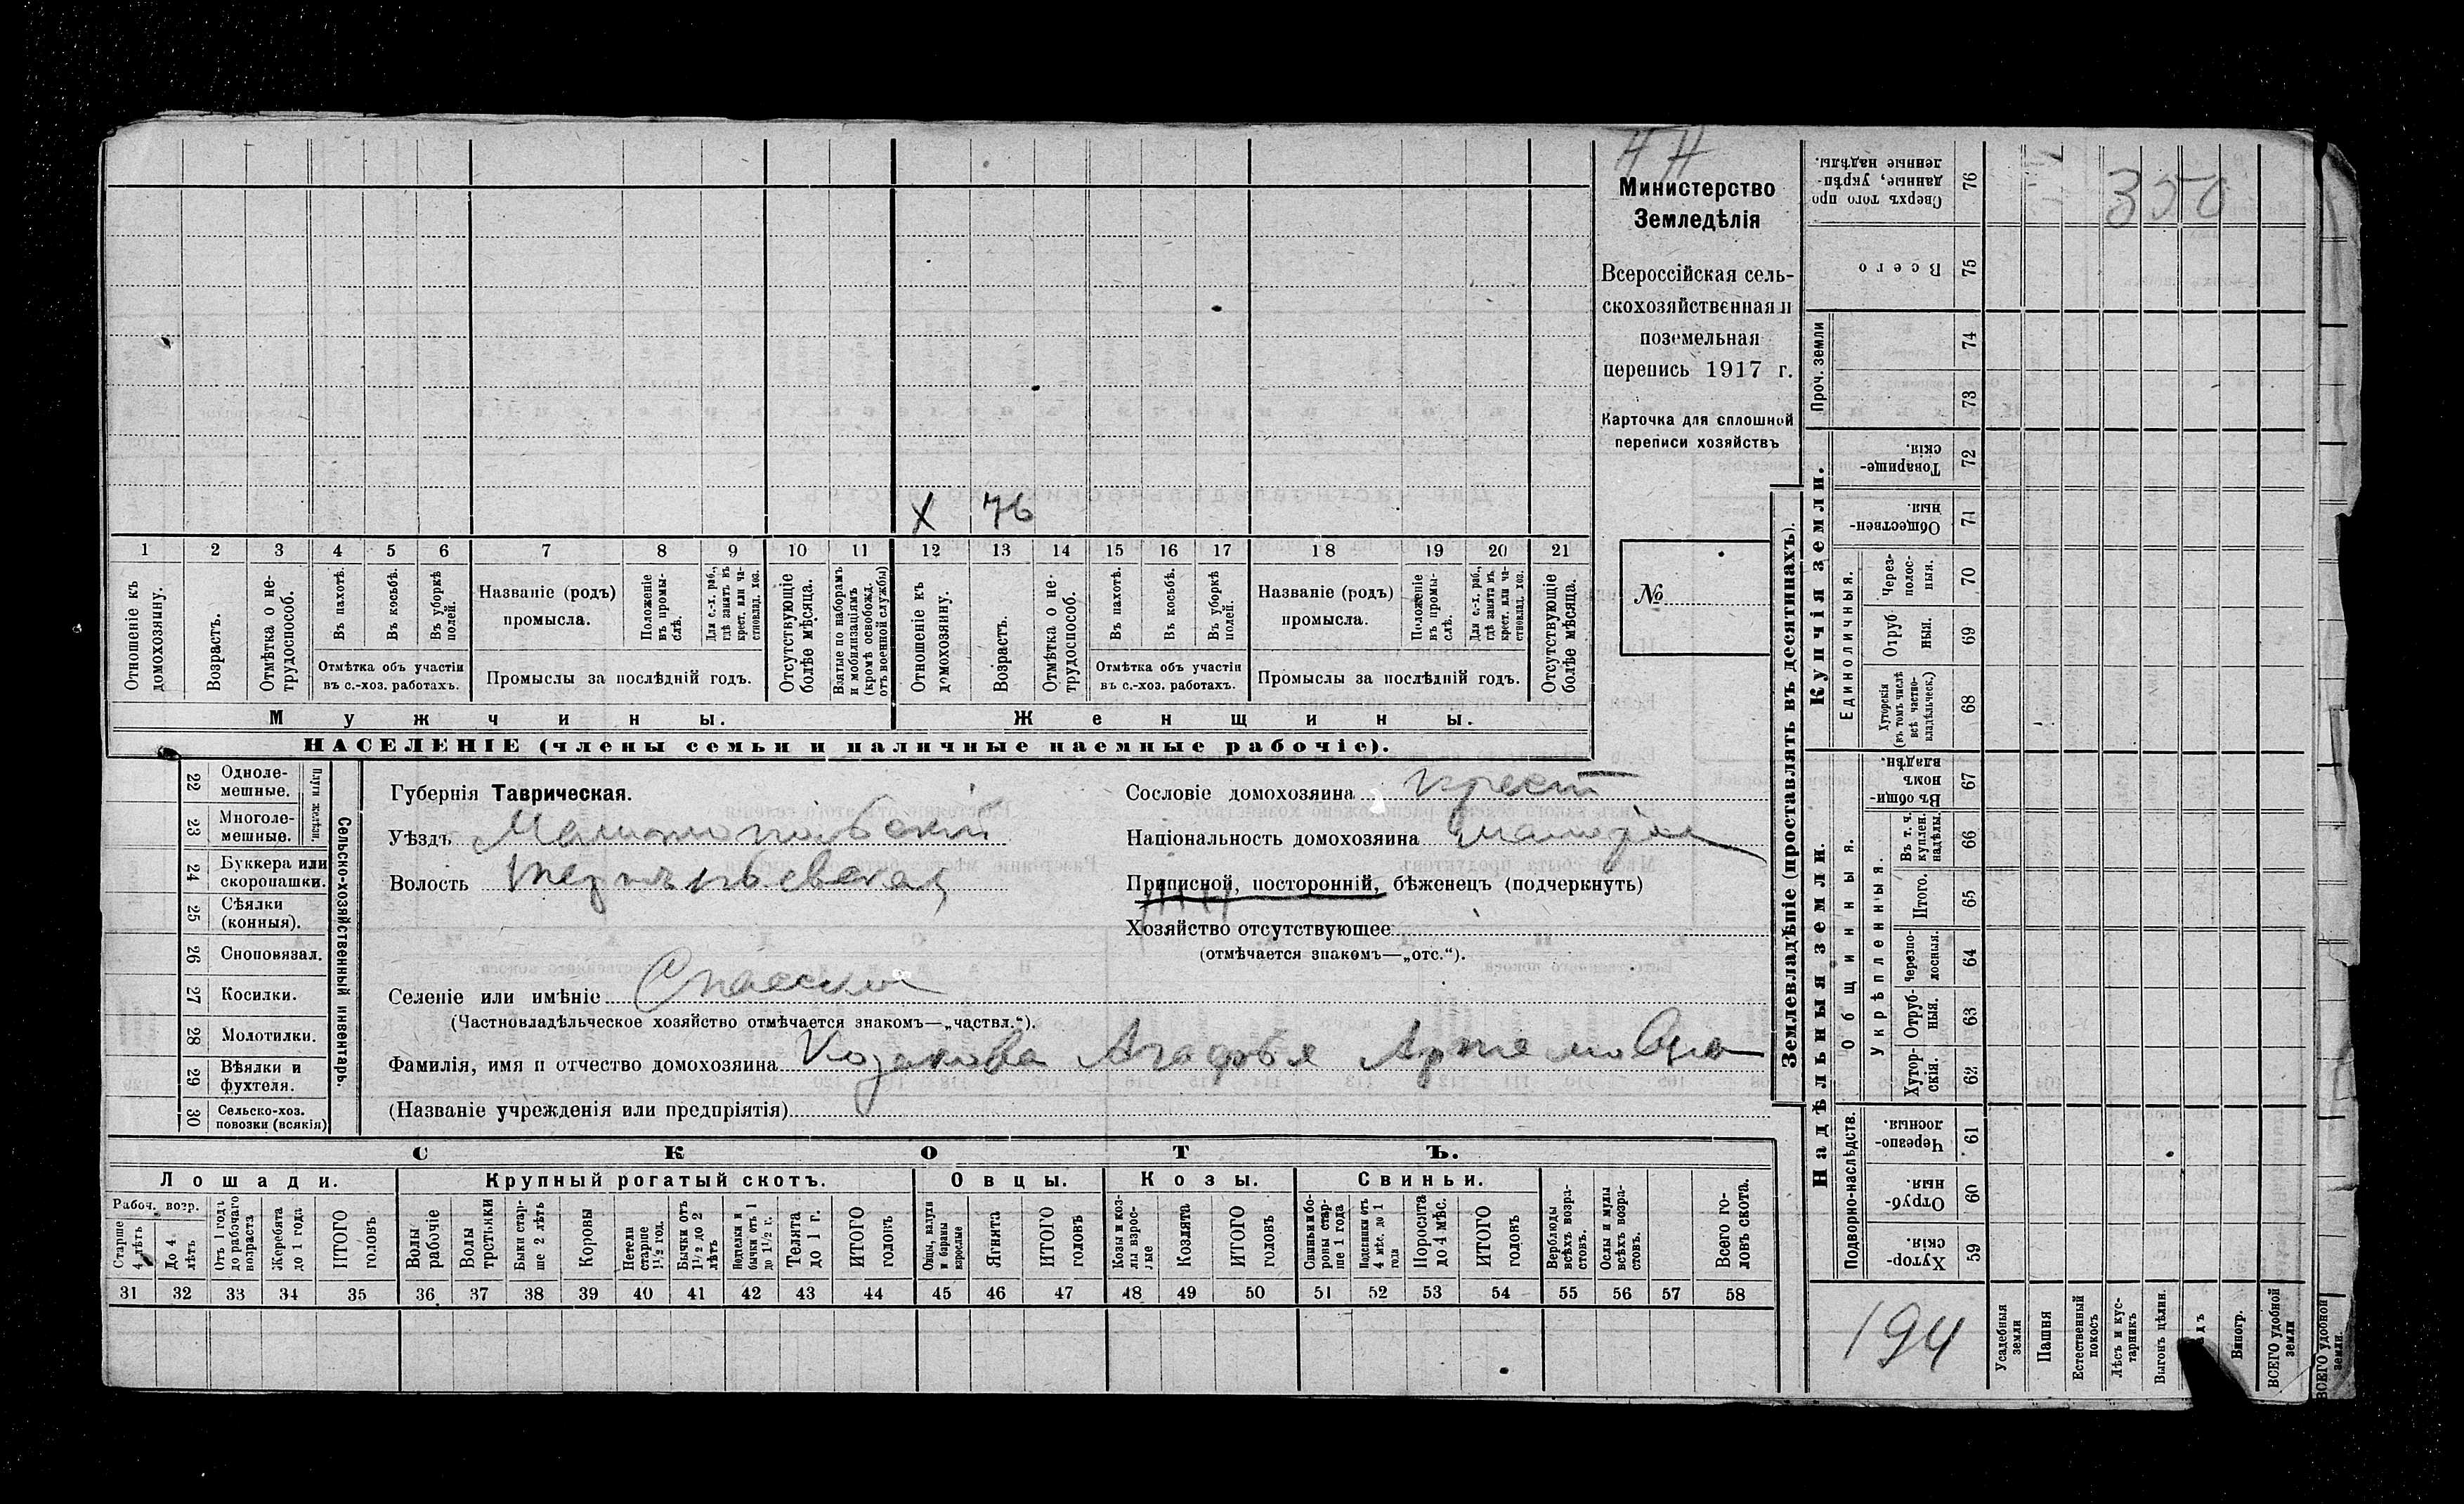 НН
Министерство
Земледѣлія
Всероссійская сель-
скохозяйственная и
поземельная
перепись 1917 г.
Карточка для сплошной
переписи хозяйствъ
№
Х 76
1 2 3 4 5 6 7 8 9 10 11 12 13 14 15 16 17 18 19 20 21
Отношеніе къ домохозяину.
Возрастъ.
Отмѣтка о не-трудоспособ.
Въ пахотѣ.
Въ косьбѣ.
Въ уборкѣ полей.
Отмѣтка объ участіи
въ с.-хоз. работахъ.
Названіе (родъ)
промысла.
Положеніе въ промы-слѣ.
Для с.-х. раб., гдѣ занятъ въ крест. или ча-стновлад. хоз.
Промыслы за послѣдній годъ.
Отсутствующіе болѣе мѣсяца.
Взятые по наборамъ и мобилизаціямъ (кромѣ освобожд. отъ военной службы)
Отношеніе къ домохозяину.
Возрастъ.
Отмѣтка о не-трудоспособ.
Въ пахотѣ.
Въ косьбѣ.
Въ уборкѣ полей.
Отмѣтка объ участіи
въ с.-хоз. работахъ.
Названіе (родъ)
промысла.
Положеніе въ промы-слѣ.
Для с.-х. раб., гдѣ занята въ крест. или ча-стновлад. хоз.
Промыслы за послѣдній годъ.
Отсутствующіе болѣе мѣсяца.
Мужчины.
Женщины.
НАСЕЛЕНІЕ (члены семьи и наличные наемные рабочіе).
Сельско-хозяйственный инвентарь.
Плуги желѣзн.
22 Одноле-мешные.
23 Многоле-мешные.
24 Буккера или скоропашки.
25 Сѣялки (конныя).
26 Сноповязал.
27 Косилки.
28 Молотилки.
29 Вѣялки и фухтеля.
30 Сельско-хоз. повозки (всякія)
Губернія Таврическая.
Уѣздъ Мелитопольскій
Волость Терпѣньевская
Селеніе или имѣніе Спасское
(Частновладѣльческое хозяйство отмѣчается знакомъ—„частвл.“).
Фамилія, имя и отчество домохозяина Козакова Агафья Артемовна
(Названіе учрежденія или предпріятія)
Сословіе домохозяина крест
Національность домохозяина
Приписной, посторонній, бѣженецъ (подчеркнуть)
Хозяйство отсутствующее
(отмѣчается знакомъ—„отс.“).
СКОТЪ.
Лошади.
Крупный рогатый скотъ.
Овцы.
Козы.
Свиньи.
Рабоч. возр.
Старше 4 лѣтъ
До 4 лѣтъ
Отъ 1 года до рабочаго возраста
Жеребята до 1 года
ИТОГО головъ
Волы рабочіе
Волы третьяки
Быки стар-ше 2 лѣтъ
Коровы
Нетели старше 1½ год.
Бычки отъ 1½ до 2 лѣтъ
Подтелки и бычки отъ 1 до 1½ г.
Телята до 1 г.
ИТОГО головъ
Овцы, валухи и бараны взрослые
Ягнята
ИТОГО головъ
Козы и коз-лы взрос-лые
Козлята
ИТОГО головъ
Свиньи и бо-ровы стар-ше 1 года
Подсвинки отъ 4 мѣс. до 1 года
Поросята до 4 мѣс.
ИТОГО головъ
Верблюды всѣхъ возра-стовъ.
Ослы и мулы всѣхъ возра-стовъ.
Всего го-ловъ скота.
31 32 33 34 35 36 37 38 39 40 41 42 43 44 45 46 47 48 49 50 51 52 53 54 55 56 57 58
Землевладѣніе (проставлять въ десятинахъ).
Сверхъ того про данные, укрѣп-ленные надѣлы. 76
350
Всего 75
Проч. земли
74
73
Купчія земли.
Товарище-скія 72
Обществен-ныя. 71
Единоличныя.
Через-полос-ныя. 70
Отруб ныя. 69
Хуторскія (въ томъ числѣ всѣ частно-владѣльческ.) 68
Надѣльныя земли.
Общинныя.
Въ общи-номъ владѣн. 67
Укрѣпленныя.
Въ т. ч. куплен. надѣлы. 66
Итого. 65
Черезпо-лосныя. 64
Отруб-ныя. 63
Хутор-скія. 62
Подворно-наслѣдств.
Черезпо-лосныя. 61
Отруб-ныя. 60
Хутор-скія. 59
194
Усадебныя земли
Пашня
Естественный покосъ
Лѣсъ и кус-тарникъ
Выгонъ цѣлин.
Виногр.
ВСЕГО удобной земли
ВСЕГО удобной земли.